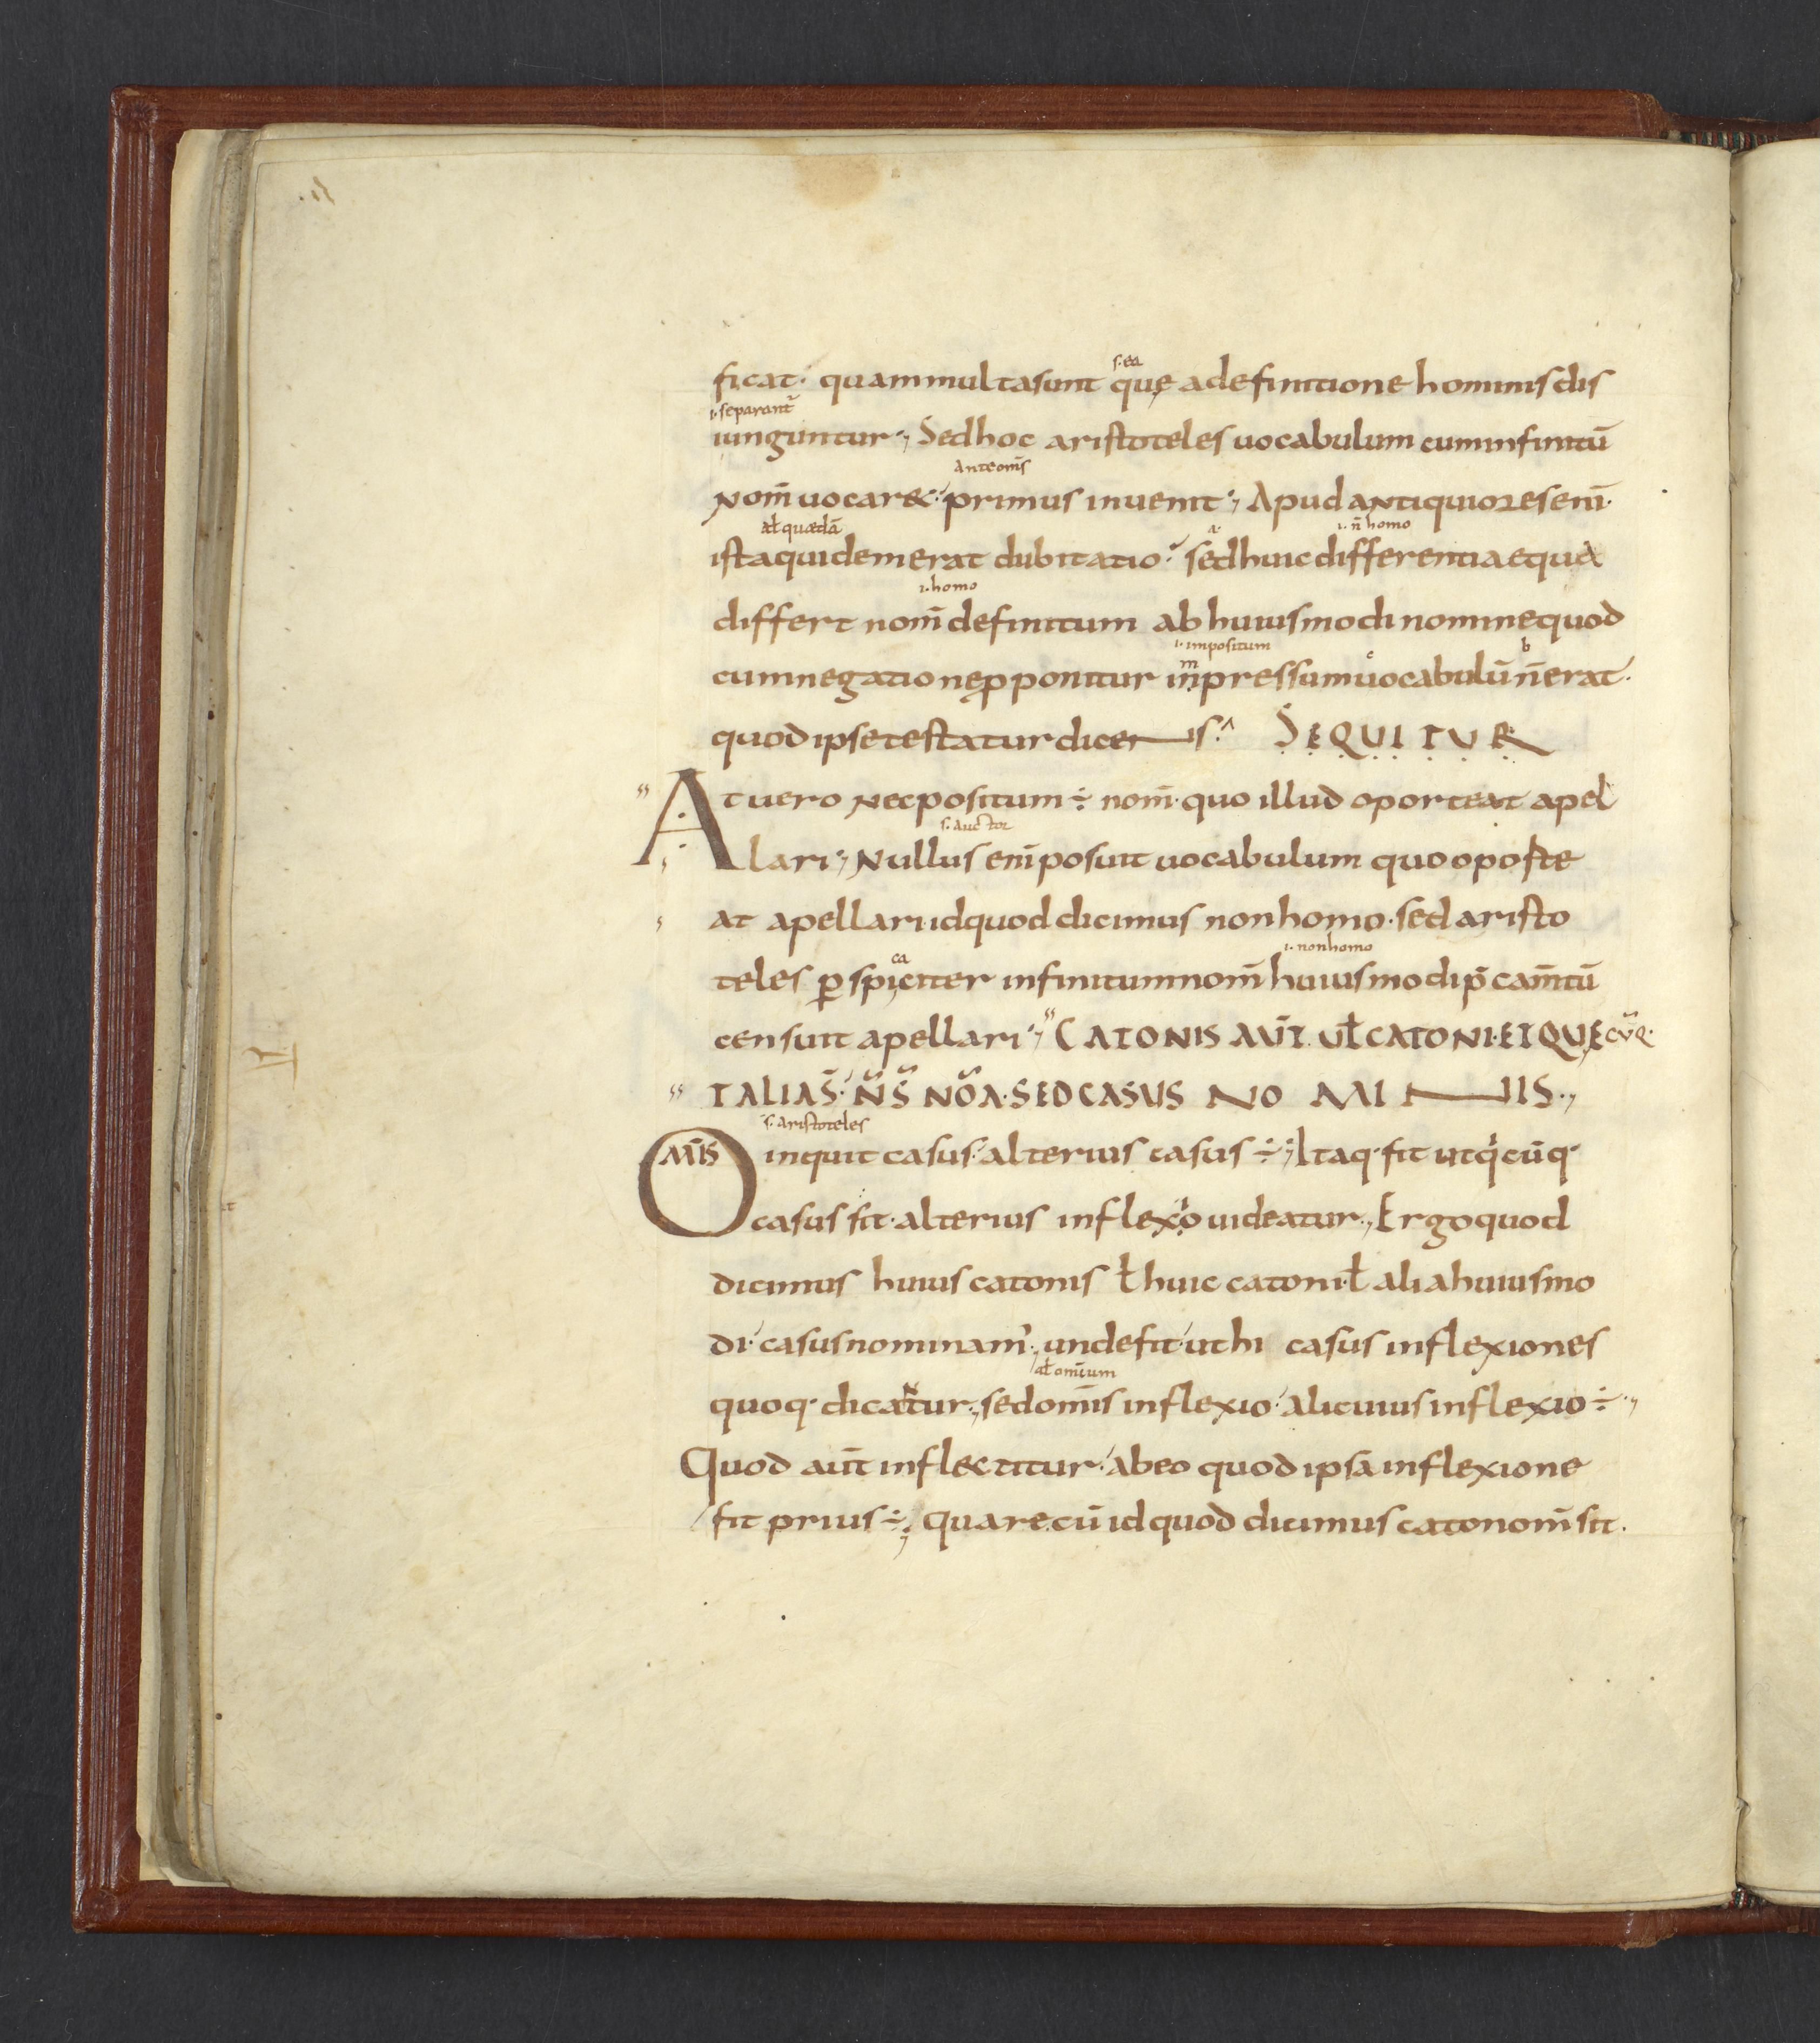 s. ea
ficat· quam multa sunt quę a definitione hominis dis
i. separant᷑
iunguntur·, Sed hoc aristoteles uocabulum cum infinitū
ante om̄s
nom̄ uocar&· primus inuenit·, Apud antiquiores enī·
al̄ quædā a· i. n̄ homo
ista quidem erat dubitatio· sed huic differentia e qua
i. homo
differt nom̄ definitum ab huiusmodi nomine quod
i. impositum b
cum negatione p̱ponitur inpressum uocabulū n̄ erat·
quod ipse testatur dicens· SEQUITUR
At uero nec positum ÷ nom̄· quo illud oporteat apel
s. auctor
lari·, Nullus enī posuit uocabulum quo oporte
at apellari id quod dicimus non homo· sed aristo
ca i. non homo
teles ꝑspiciter infinitum nom̄ huiusmodi p̄camtū
censuit apellari·, CATONIS AUT̄ UŁ CATONI· ET QUE CŪQ·
TALIA S̄· N̄ S̄ NŌA· SED CASUS NOMINIS·,
s. aristoteles
Om̄is inquit casus· alterius casus ÷·, Itaq· fit ut q̍cūq·
casus sit· alterius inflexio uideatur·, Ergo quod
dicimus huius catonis ł huic catoni· ł alia huiusmo
di· casus nominam᷑·, unde fit· ut hi casus inflexiones
al̄ omīum
quoq· dicatur·, sed om̄is inflexio· alicuius inflexio ÷·,
Quod aut̄ inflectitur· ab eo quod ipsā inflexione
fit prius ÷·, Quare cū id quod dicimus cato nom̄ sit·